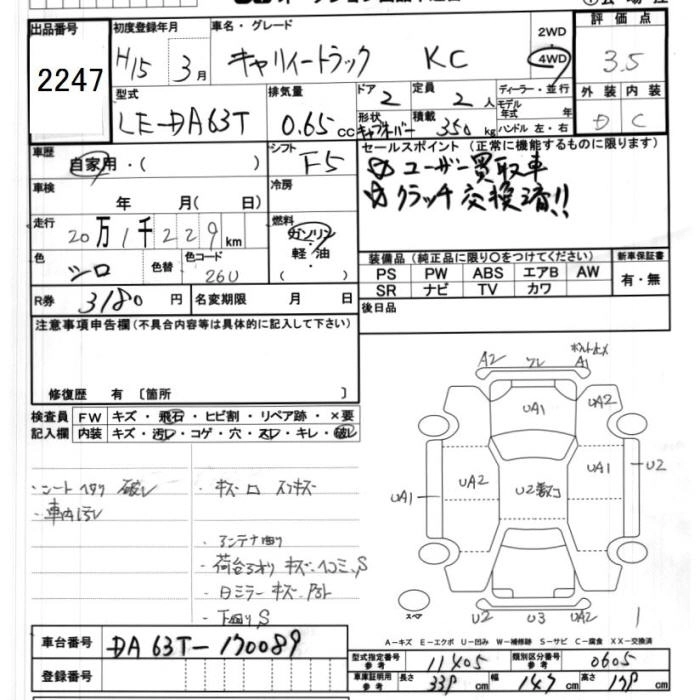 出品番号
2247
初度登録年月
H15 3月
車名・グレード
キャリィートラック KC
2WD
4WD
評価点
3.5
型式
LE-DA63T
排気量
0.65 cc
ドア
2
定員
2人
形状
キャブオーバー
積載
350 kg
ディーラー・並行
モデル年式 年
ハンドル 左・右
外装 内装
D C
車歴
自家用・( )
シフト
F5
セールスポイント(正常に機能するものに限ります)
ユーザー買取車
クラッチ交換済!!
車検
年 月( 日)
冷房
走行
20万1千229km
燃料
ガソリン
・
軽油
( )
色
シロ
色替
色コード
26U
装備品(純正品に限り〇をつけてください)
新車保証書
PS PW ABS エアB AW
SR ナビ TV カワ
有・無
R券
3180円
名変期限 月 日
後日品
注意事項申告欄(不具合内容等は具体的に記入して下さい)
修復歴 有〔箇所 〕
検査員
記入欄
FW キズ・飛石・ヒビ割・リペア跡・×要
内装 キズ・汚レ・コゲ・穴・スレ・キレ・破レ
・シートヘタリ 破レ
・車内汚レ
・アンテナ曲り
・荷台アオリ キズ、ヘコミ、S
・下回りS
A2
A1
UA1
UA2
UA2
UA1
U2
UA1
U2
U3
UA2
スペア
1
A-キズ E-エクボ U-凹み W-補修跡 S-サビ C-腐食 XX-交換済
車台番号
DA63T-170089
登録番号
型式指定番号
参考
11405
類別区分番号
参考
0605
車庫証明用
参考
長さ 339 cm
幅 147 cm
高さ 178 cm